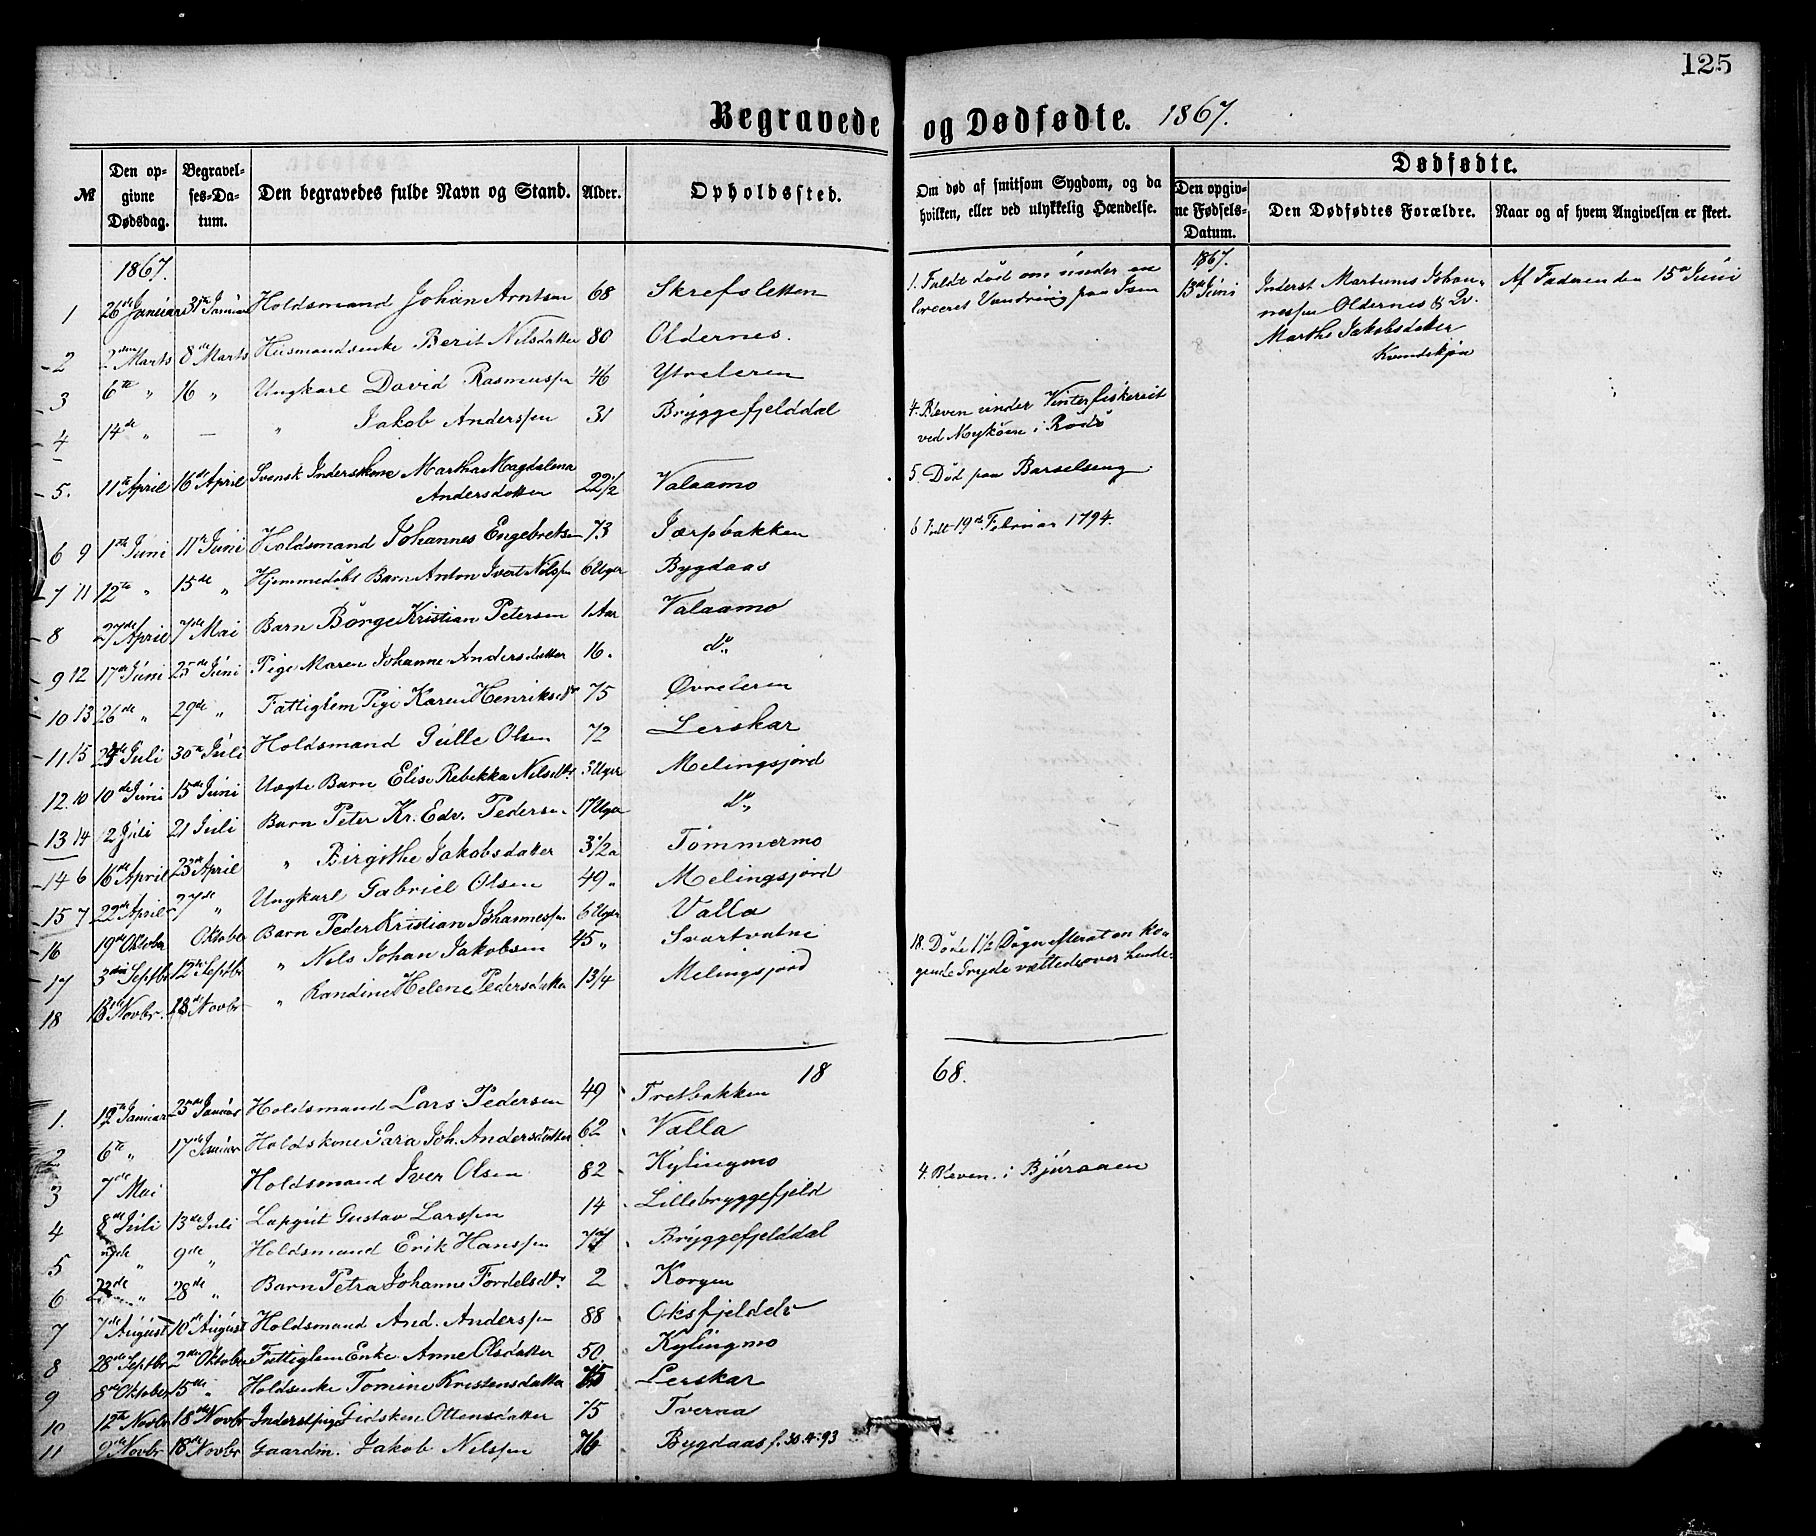 125
Begravede og Dødfødte. 1867.
№ Den opgivne Dødsdag. Begravelses-Datum. Den begravedes fulde Navn og Stand. Alder. Opholdssted. Om død af smitsom Sygdom, og da hvilken, eller ved ulykkelig Hændelse.
Dødfødte.
Den opgivne Fødsels-Datum. Den Dødfødtes Forældre. Naar og af hvem Angivelsen er skeet.
1867.
1 26de Januar 31te Januar Holdsmand Johan Arntsen 68 Skrefsletten 1. Faldt død om under en Vandring paa Isen
2 2den Marts 8de Marts Husmandsenke Berit Nilsdatter 80 Oldernes.
3 6te " 16 " Ungkarl David Rasmussen 46 Ytreleren
4 14de " — " Jakob Anderssen 31 Bryggefjelddal 4. Bleven under Vinterfiskeriet ved Myken i Rødø
5. 11te April 16de April Svensk Inderstkone Martha Magdalena Andersdatter 22 1/2 Valaamo 5. Død paa Barselseng
6 9 1ste Juni 11te Juni Holdsmand Johannes Engebretsen 73 Jærpbakken 6 Født 19de Februar 1794.
7 11 12te " 15de " Hjemmedøbt Barn Anton Ivert Nilssen 6 Uger Bygdaas
8 27de April 7de Mai Barn Børge Kristian Petersen 1 Aar Valaamo
9 12 17de Juni 25de Juni Pige Maren Johanne Andersdatter 16. do
10 13 26de " 29de " Fattiglem Pige Karen Henriksdtr 75 Øvreleren
11 15 23de Juli 30te Juli Holdsmand Gulle Olsen 72 Lerskar
12. 10 10de Juni 15de Juni Uægte Barn Elise Rebekka Nilsdtr 3 Uger Melingsjord
13 14 2 Juli 21 Juli Barn Peter Kr. Edv. Pedersen 17 Uger do
14 6 16de April 23de April " Birgithe Jakobsdatter 3 1/2 a Tømmermo
15 7 22de April 27de " Ungkarl Gabriel Olsen 49 " Melingsjord
16 19de Oktober Oktober Barn Peder Kristian Johannessen 6 Uger Valla
17 3die Septbr 12te Septbr " Nils Johan Jakobsen 45 " Svartvatne
18 Novbr. 18de Novbr " Randine Helene Pedersdatter 1 3/4 Melingsjord 18. Døde 1 1/2 Døgn efterat en kogende Gryde væltede over hende.
1867.
13de Juni Inderst Martinus Johannessen Oldernes & Q. Marthe Jakobsdatter Kvindekjøn Af Faderen den 15de Juni
18 68.
1. 12te Januar 25de Januar Holdsmand Lars Pedersen 49 Tretbakken
2 6te " 17de Januar Holdskone Sara Joh. Andersdatter 62 Valla
3 7de Mai Holdsmand Iver Olsen 82 Kylingmo
4 8de Juli 13de Juli Lapgut Gustav Larssen 14 Lillebryggefjeld 4. Bleven i Bjuraaen
5 de " 9de " Holdsmand Erik Hanssen 77 Bryggefjelddal
6 22de " 28de " Barn Petra Johanne Fordelsdtr 2 Korgen
7 7de August 10de August Holdsmand And. Anderssen 88 Oksfjeldelv
8 28de Septbr 2den Oktober Fattiglem Enke Anne Olsdatter 50 Kylingmo
9 8de Oktober 15de " Holdsenke Tomine Kristensdatter 75 Lerskar
10 12te Novbr 18de Novbr Inderstpige Gidsken Ottensdatter 75 Tveraa
11 9de Novbr 18de Novbr Gaardm. Jakob Nilssen 76 Bygdaas f. 30.4.93